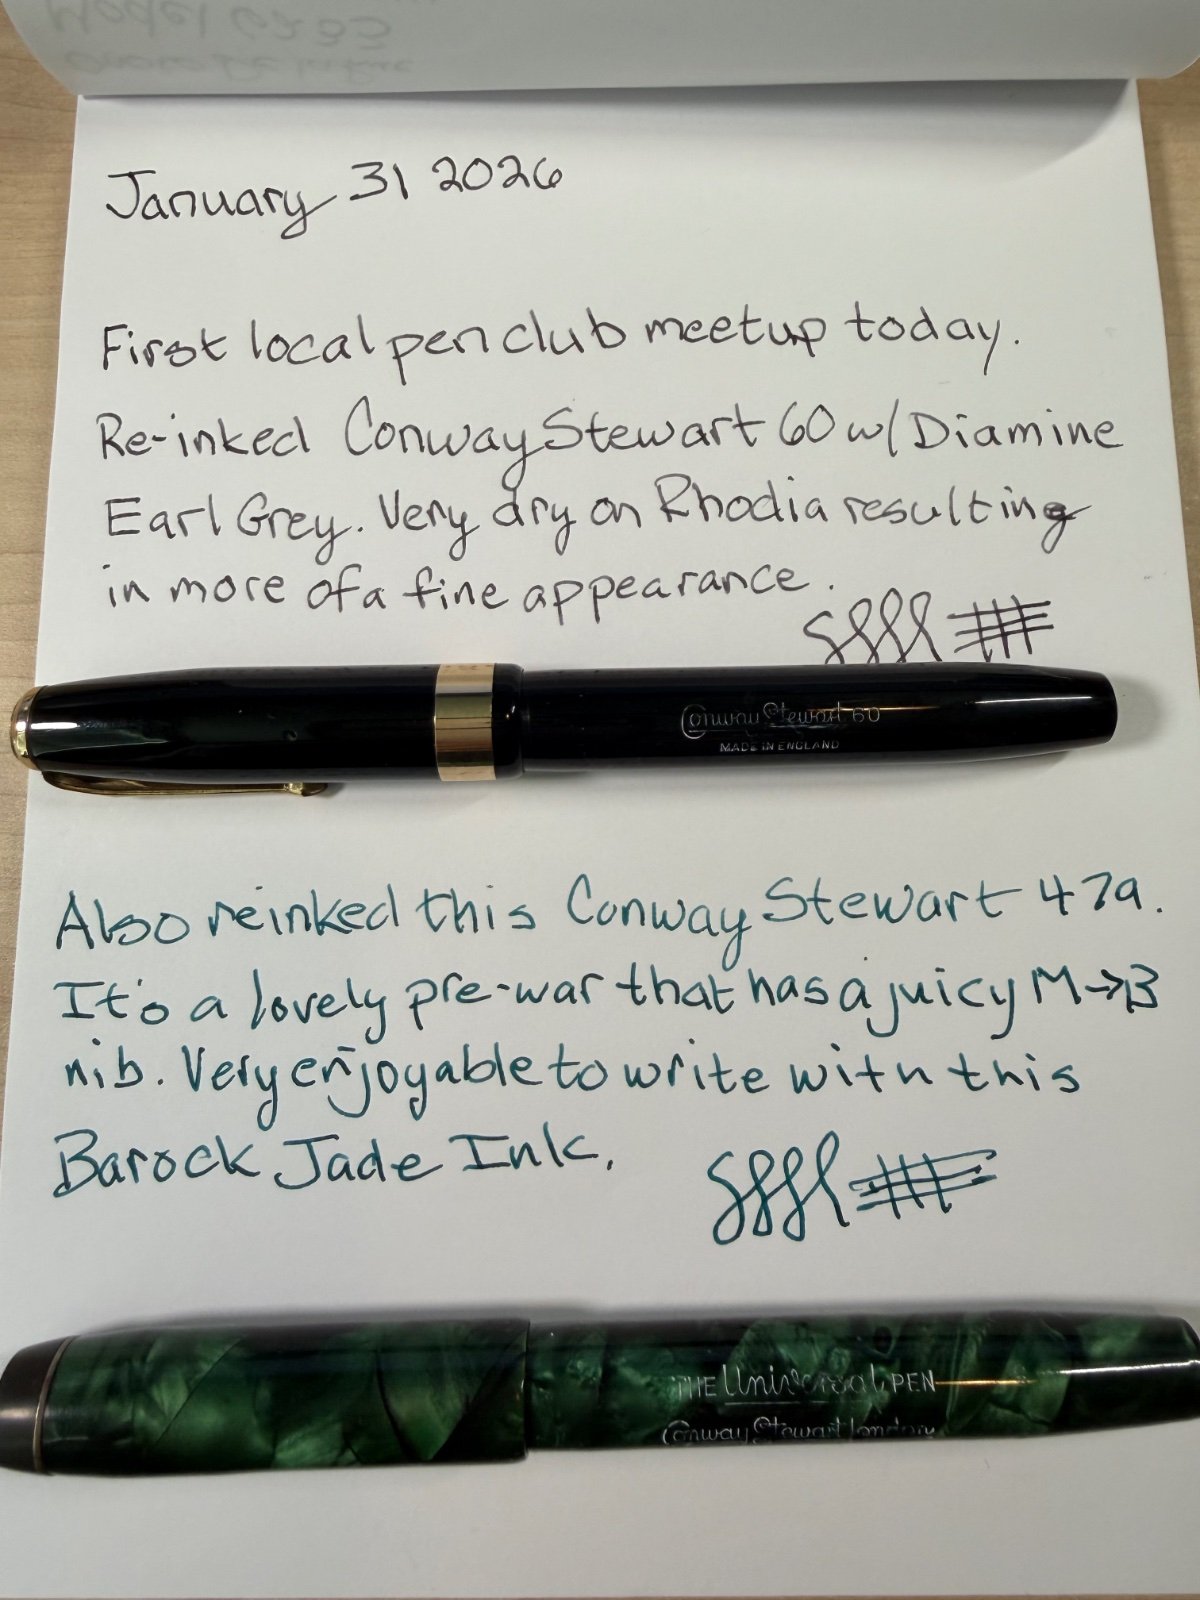 January 31 2026
First local pen club meetup today.
Re-inked Conway Stewart 60 w/ Diamine
Earl Grey. Very dry on Rhodia resulting
in more of a fine appearance.
Conway Stewart 60
MADE IN ENGLAND
Also reinked this Conway Stewart 479.
It's a lovely pre-war that has a juicy M→B
nib. Very enjoyable to write with this
Barock Jade Ink.
THE Universal PEN
Conway Stewart London